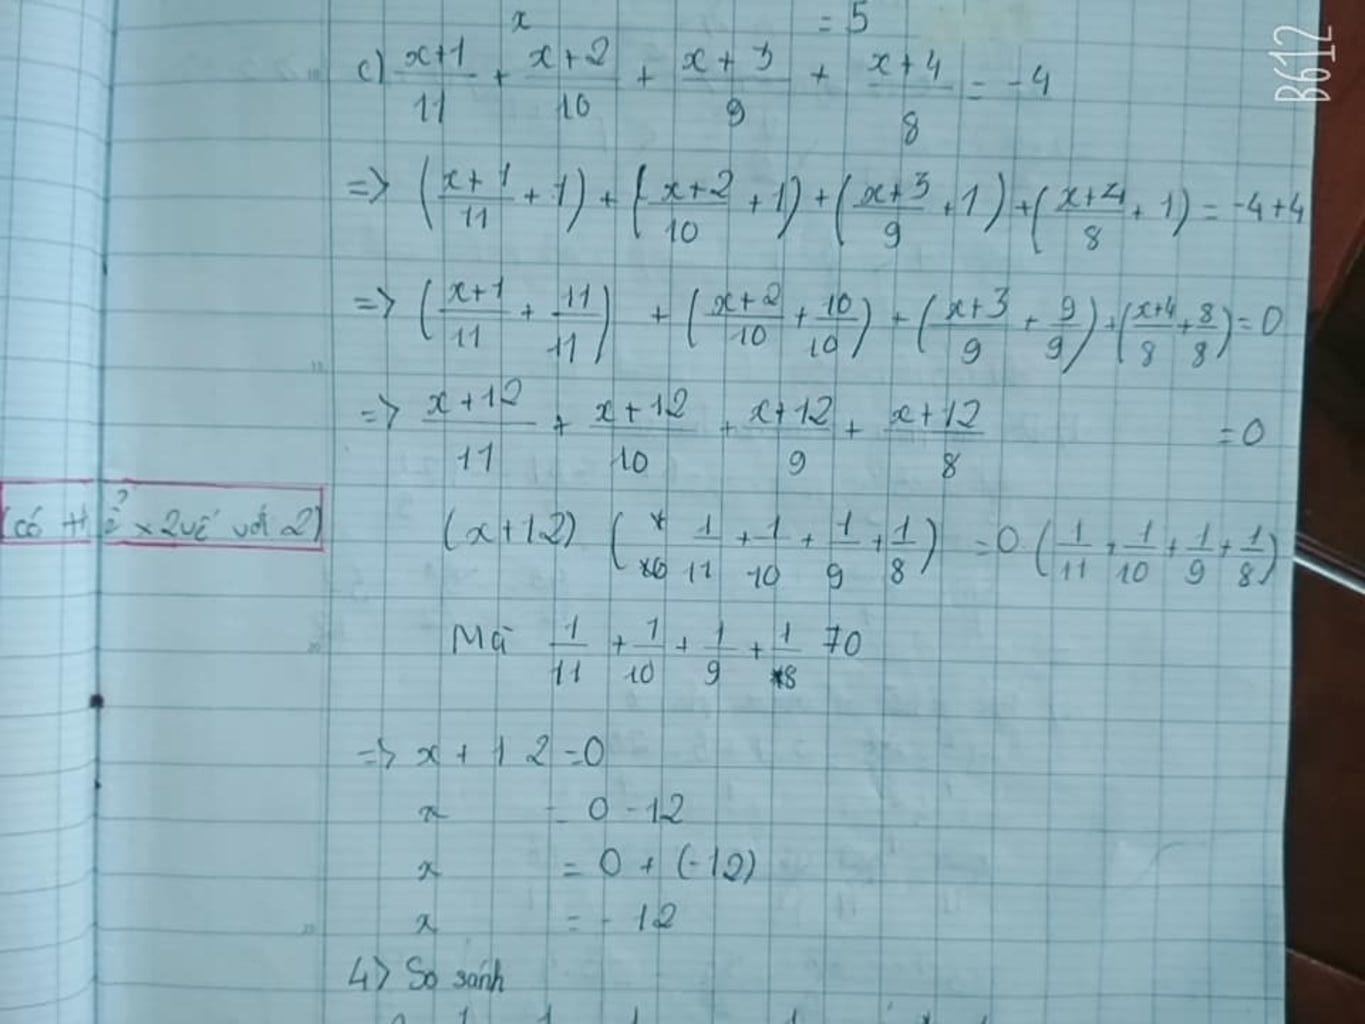 x = 5
c) x+1/11 + x+2/10 + x+3/9 + x+4/8 = -4
=> (x+1/11 + 1) + (x+2/10 + 1) + (x+3/9 + 1) + (x+4/8 + 1) = -4+4
=> (x+1/11 + 11/11) + (x+2/10 + 10/10) + (x+3/9 + 9/9) + (x+4/8 + 8/8) = 0
=> x+12/11 + x+12/10 + x+12/9 + x+12/8 = 0
(có thể x 2 vế với 2)
(x+12) (1/11 + 1/10 + 1/9 + 1/8) = 0 (1/11 + 1/10 + 1/9 + 1/8)
Mà 1/11 + 1/10 + 1/9 + 1/8 ≠0
=> x + 12 = 0
x = 0 - 12
x = 0 + (-12)
x = - 12
4) So sánh
B612